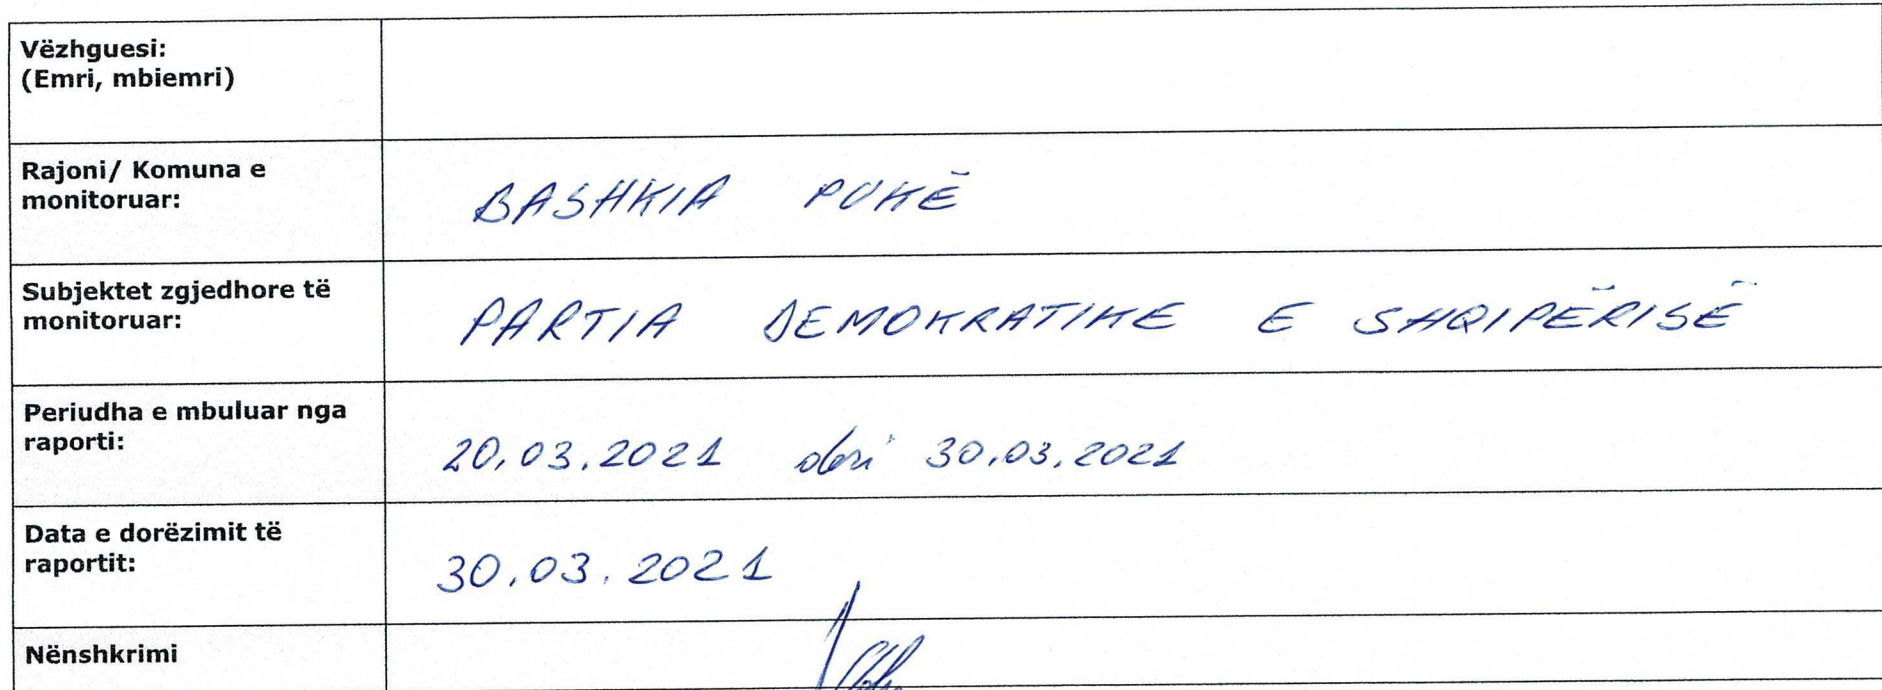 Vëzhguesi:
(Emri, mbiemri)
Rajoni/ Komuna e
monitoruar:
BASHKIA PUKË
Subjektet zgjedhore të
monitoruar:
PARTIA DEMOKRATIKE E SHQIPËRISË
Periudha e mbuluar nga
raporti:
20.03.2021 deri 30.03.2021
Data e dorëzimit të
raportit:
30.03.2021
Nënshkrimi